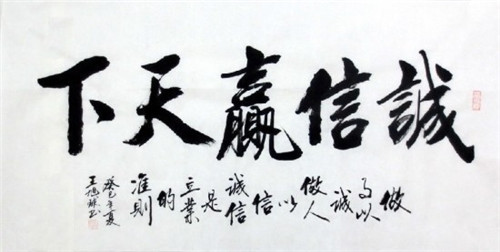 誠信赢天下
做
事以
誠
做人
以
信
誠信
是
立業
的
准則
癸巳年夏